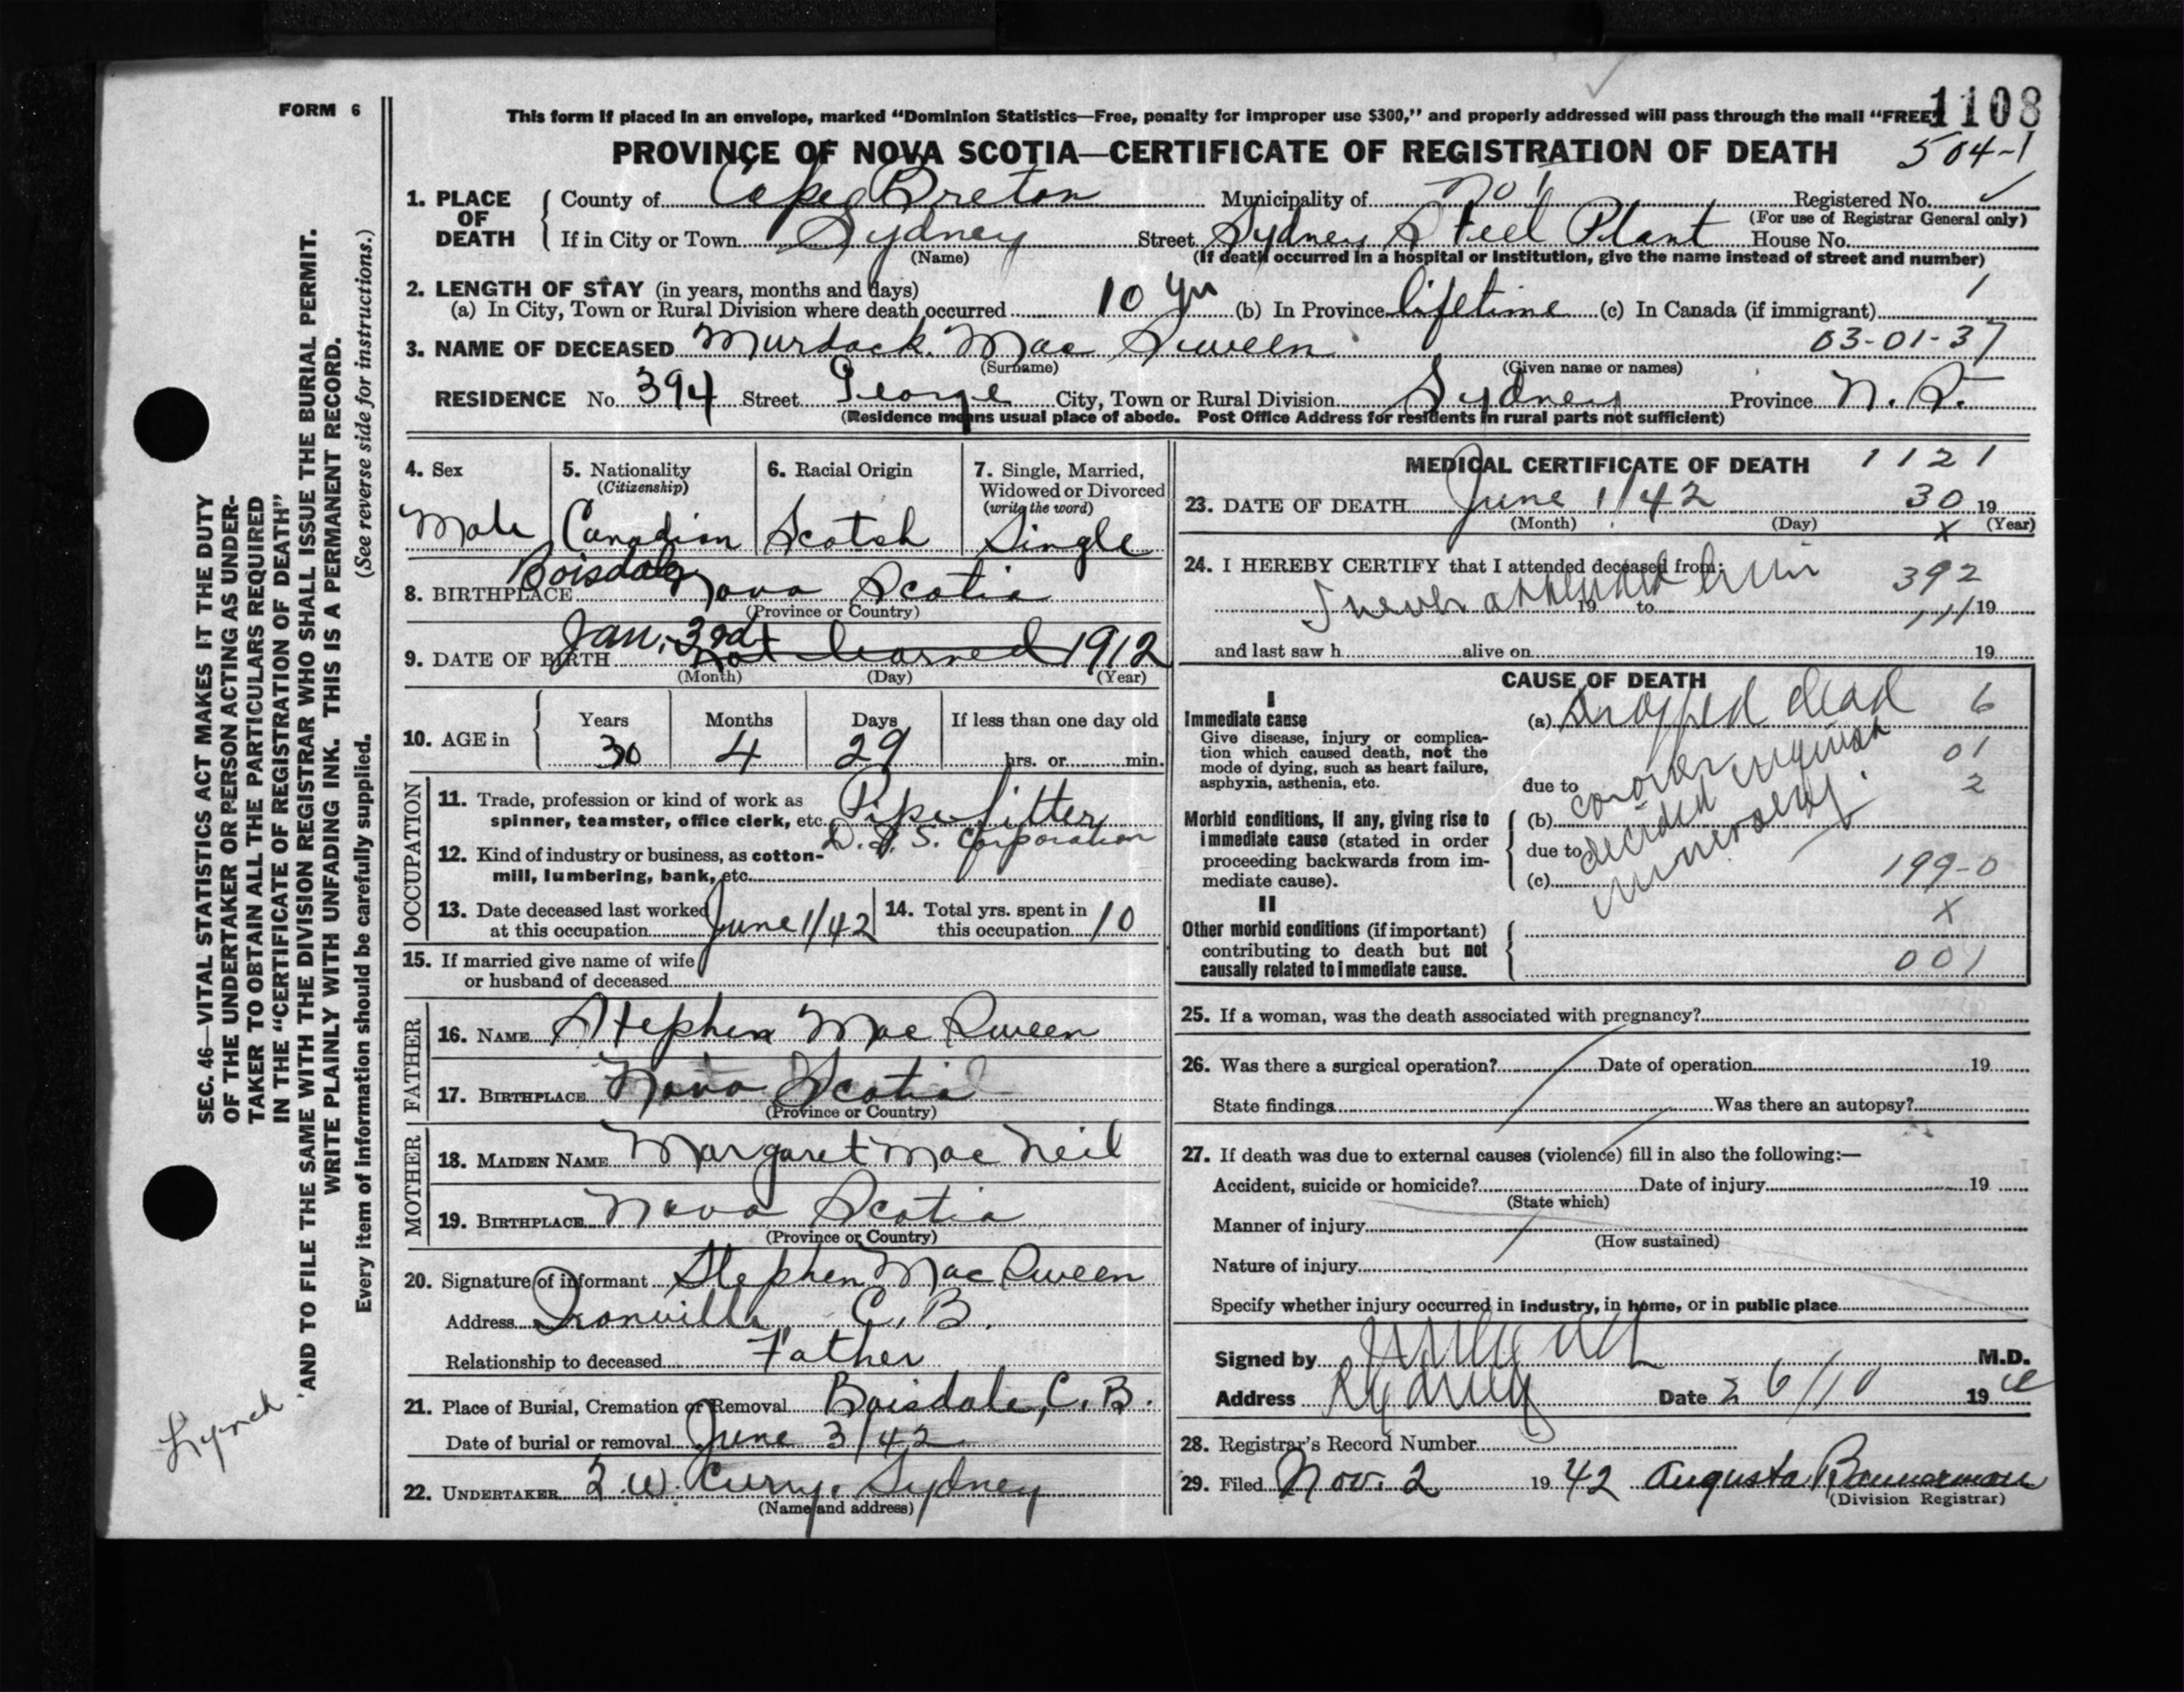 FORM 6
This form if placed in an envelope, marked "Dominion Statistics—Free, penalty for improper use $300," and properly addressed will pass through the mail "FREE"
1108
PROVINCE OF NOVA SCOTIA—CERTIFICATE OF REGISTRATION OF DEATH 504-1
1. PLACE OF DEATH
County of Cape Breton Municipality of No 1 Registered No.
(For use of Registrar General only)
If in City or Town Sydney Street Sydney Steel Plant House No.
(Name) (If death occurred in a hospital or institution, give the name instead of street and number)
2. LENGTH OF STAY (in years, months and days)
(a) In City, Town or Rural Division where death occurred 10 yrs (b) In Province lifetime (c) In Canada (if immigrant) 1
3. NAME OF DECEASED Murdock Mac Sween 03-01-37
(Surname) (Given name or names)
RESIDENCE No. 394 Street George City, Town or Rural Division Sydney Province N.S.
(Residence means usual place of abode. Post Office Address for residents in rural parts not sufficient)
4. Sex
Male
5. Nationality
(Citizenship)
Canadian
6. Racial Origin
Scotch
7. Single, Married,
Widowed or Divorced
(write the word)
Single
8. BIRTHPLACE Boisdale Nova Scotia
(Province or Country)
9. DATE OF BIRTH Jan. 3rd not learned 1912
(Month) (Day) (Year)
10. AGE in
Years Months Days If less than one day old
30 4 29 hrs. or min.
OCCUPATION
11. Trade, profession or kind of work as
spinner, teamster, office clerk, etc. Pipe fitter
12. Kind of industry or business, as cotton-
mill, lumbering, bank, etc. D. & S. Corporation
13. Date deceased last worked
at this occupation June 1/42
14. Total yrs. spent in
this occupation 10
15. If married give name of wife
or husband of deceased
FATHER
16. NAME Stephen Mac Sween
17. BIRTHPLACE Nova Scotia
(Province or Country)
MOTHER
18. MAIDEN NAME Margaret Mac Neil
19. BIRTHPLACE Nova Scotia
(Province or Country)
20. Signature of informant Stephen Mac Sween
Address Ironville C.B.
Relationship to deceased Father
21. Place of Burial, Cremation or Removal Boisdale, C.B.
Date of burial or removal June 3/42
22. UNDERTAKER W. Curry, Sydney
(Name and address)
MEDICAL CERTIFICATE OF DEATH 1121
23. DATE OF DEATH June 1/42 30 19
(Month) (Day) X (Year)
24. I HEREBY CERTIFY that I attended deceased from:
I never attended him 392
19 to 111 19
and last saw h alive on 19
CAUSE OF DEATH
I
Immediate cause
Give disease, injury or complica-
tion which caused death, not the
mode of dying, such as heart failure,
asphyxia, asthenia, etc.
(a) Dropped dead 6
01
due to coroner 2
decided inquest
unnecessary.
Morbid conditions, if any, giving rise to
immediate cause (stated in order
proceeding backwards from im-
mediate cause).
(b)
due to
(c) 199-0
II X
Other morbid conditions (if important)
contributing to death but not
causally related to immediate cause. 001
25. If a woman, was the death associated with pregnancy?
26. Was there a surgical operation? Date of operation 19
State findings Was there an autopsy?
27. If death was due to external causes (violence) fill in also the following:—
Accident, suicide or homicide? Date of injury 19
(State which)
Manner of injury
(How sustained)
Nature of injury
Specify whether injury occurred in industry, in home, or in public place
Signed by M.D.
Address Sydney Date 26/10 19
28. Registrar's Record Number
29. Filed Nov. 2 19 42 Augusta Bannerman
(Division Registrar)
SEC. 46—VITAL STATISTICS ACT MAKES IT THE DUTY
OF THE UNDERTAKER OR PERSON ACTING AS UNDER-
TAKER TO OBTAIN ALL THE PARTICULARS REQUIRED
IN THE "CERTIFICATE OF REGISTRATION OF DEATH"
AND TO FILE THE SAME WITH THE DIVISION REGISTRAR WHO SHALL ISSUE THE BURIAL PERMIT.
WRITE PLAINLY WITH UNFADING INK. THIS IS A PERMANENT RECORD.
Every item of information should be carefully supplied. (See reverse side for instructions.)
Lynch